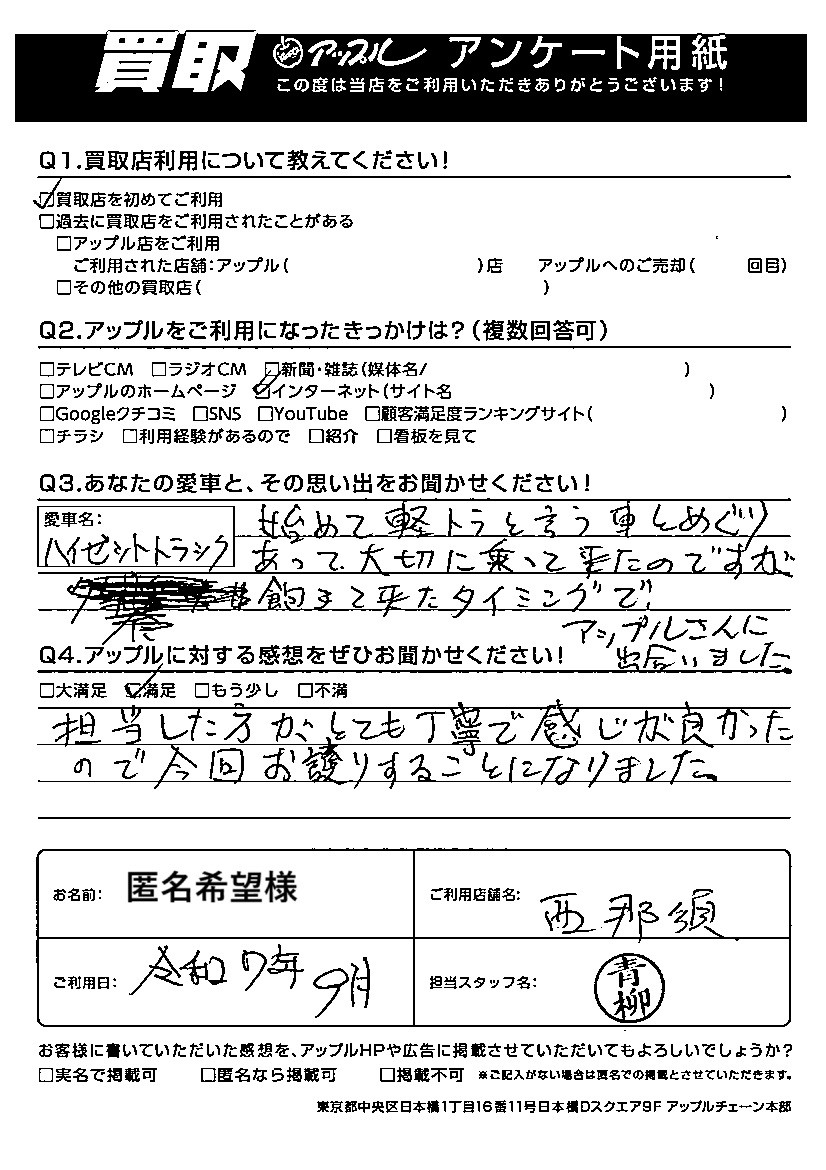 買取 アップル アンケート用紙
この度は当店をご利用いただきありがとうございます!
Q1.買取店利用について教えてください!
☑買取店を初めてご利用
□過去に買取店をご利用されたことがある
□アップル店をご利用
ご利用された店舗:アップル( )店 アップルへのご売却( 回目)
□その他の買取店( )
Q2.アップルをご利用になったきっかけは?(複数回答可)
□テレビCM □ラジオCM □新聞・雑誌(媒体名/ )
□アップルのホームページ ☑インターネット(サイト名 )
□Googleクチコミ □SNS □YouTube □顧客満足度ランキングサイト( )
□チラシ □利用経験があるので □紹介 □看板を見て
Q3.あなたの愛車と、その思い出をお聞かせください!
愛車名:
ハイゼットトラック
始めて軽トラと言う車とめぐり
あって、大切に乗って来たのですが
飽きて来たタイミングで、
アップルさんに
出合いました
Q4.アップルに対する感想をぜひお聞かせください!
□大満足 ☑満足 □もう少し □不満
担当した方が、とても丁寧で感じが良かった
ので今回お譲りすることになりました。
お名前: 匿名希望様
ご利用店舗名: 西那須
ご利用日: 令和7年9月
担当スタッフ名: 青柳
お客様に書いていただいた感想を、アップルHPや広告に掲載させていただいてもよろしいでしょうか?
□実名で掲載可 □匿名なら掲載可 □掲載不可 ※ご記入がない場合は匿名での掲載とさせていただきます。
東京都中央区日本橋1丁目16番11号日本橋Dスクエア9F アップルチェーン本部